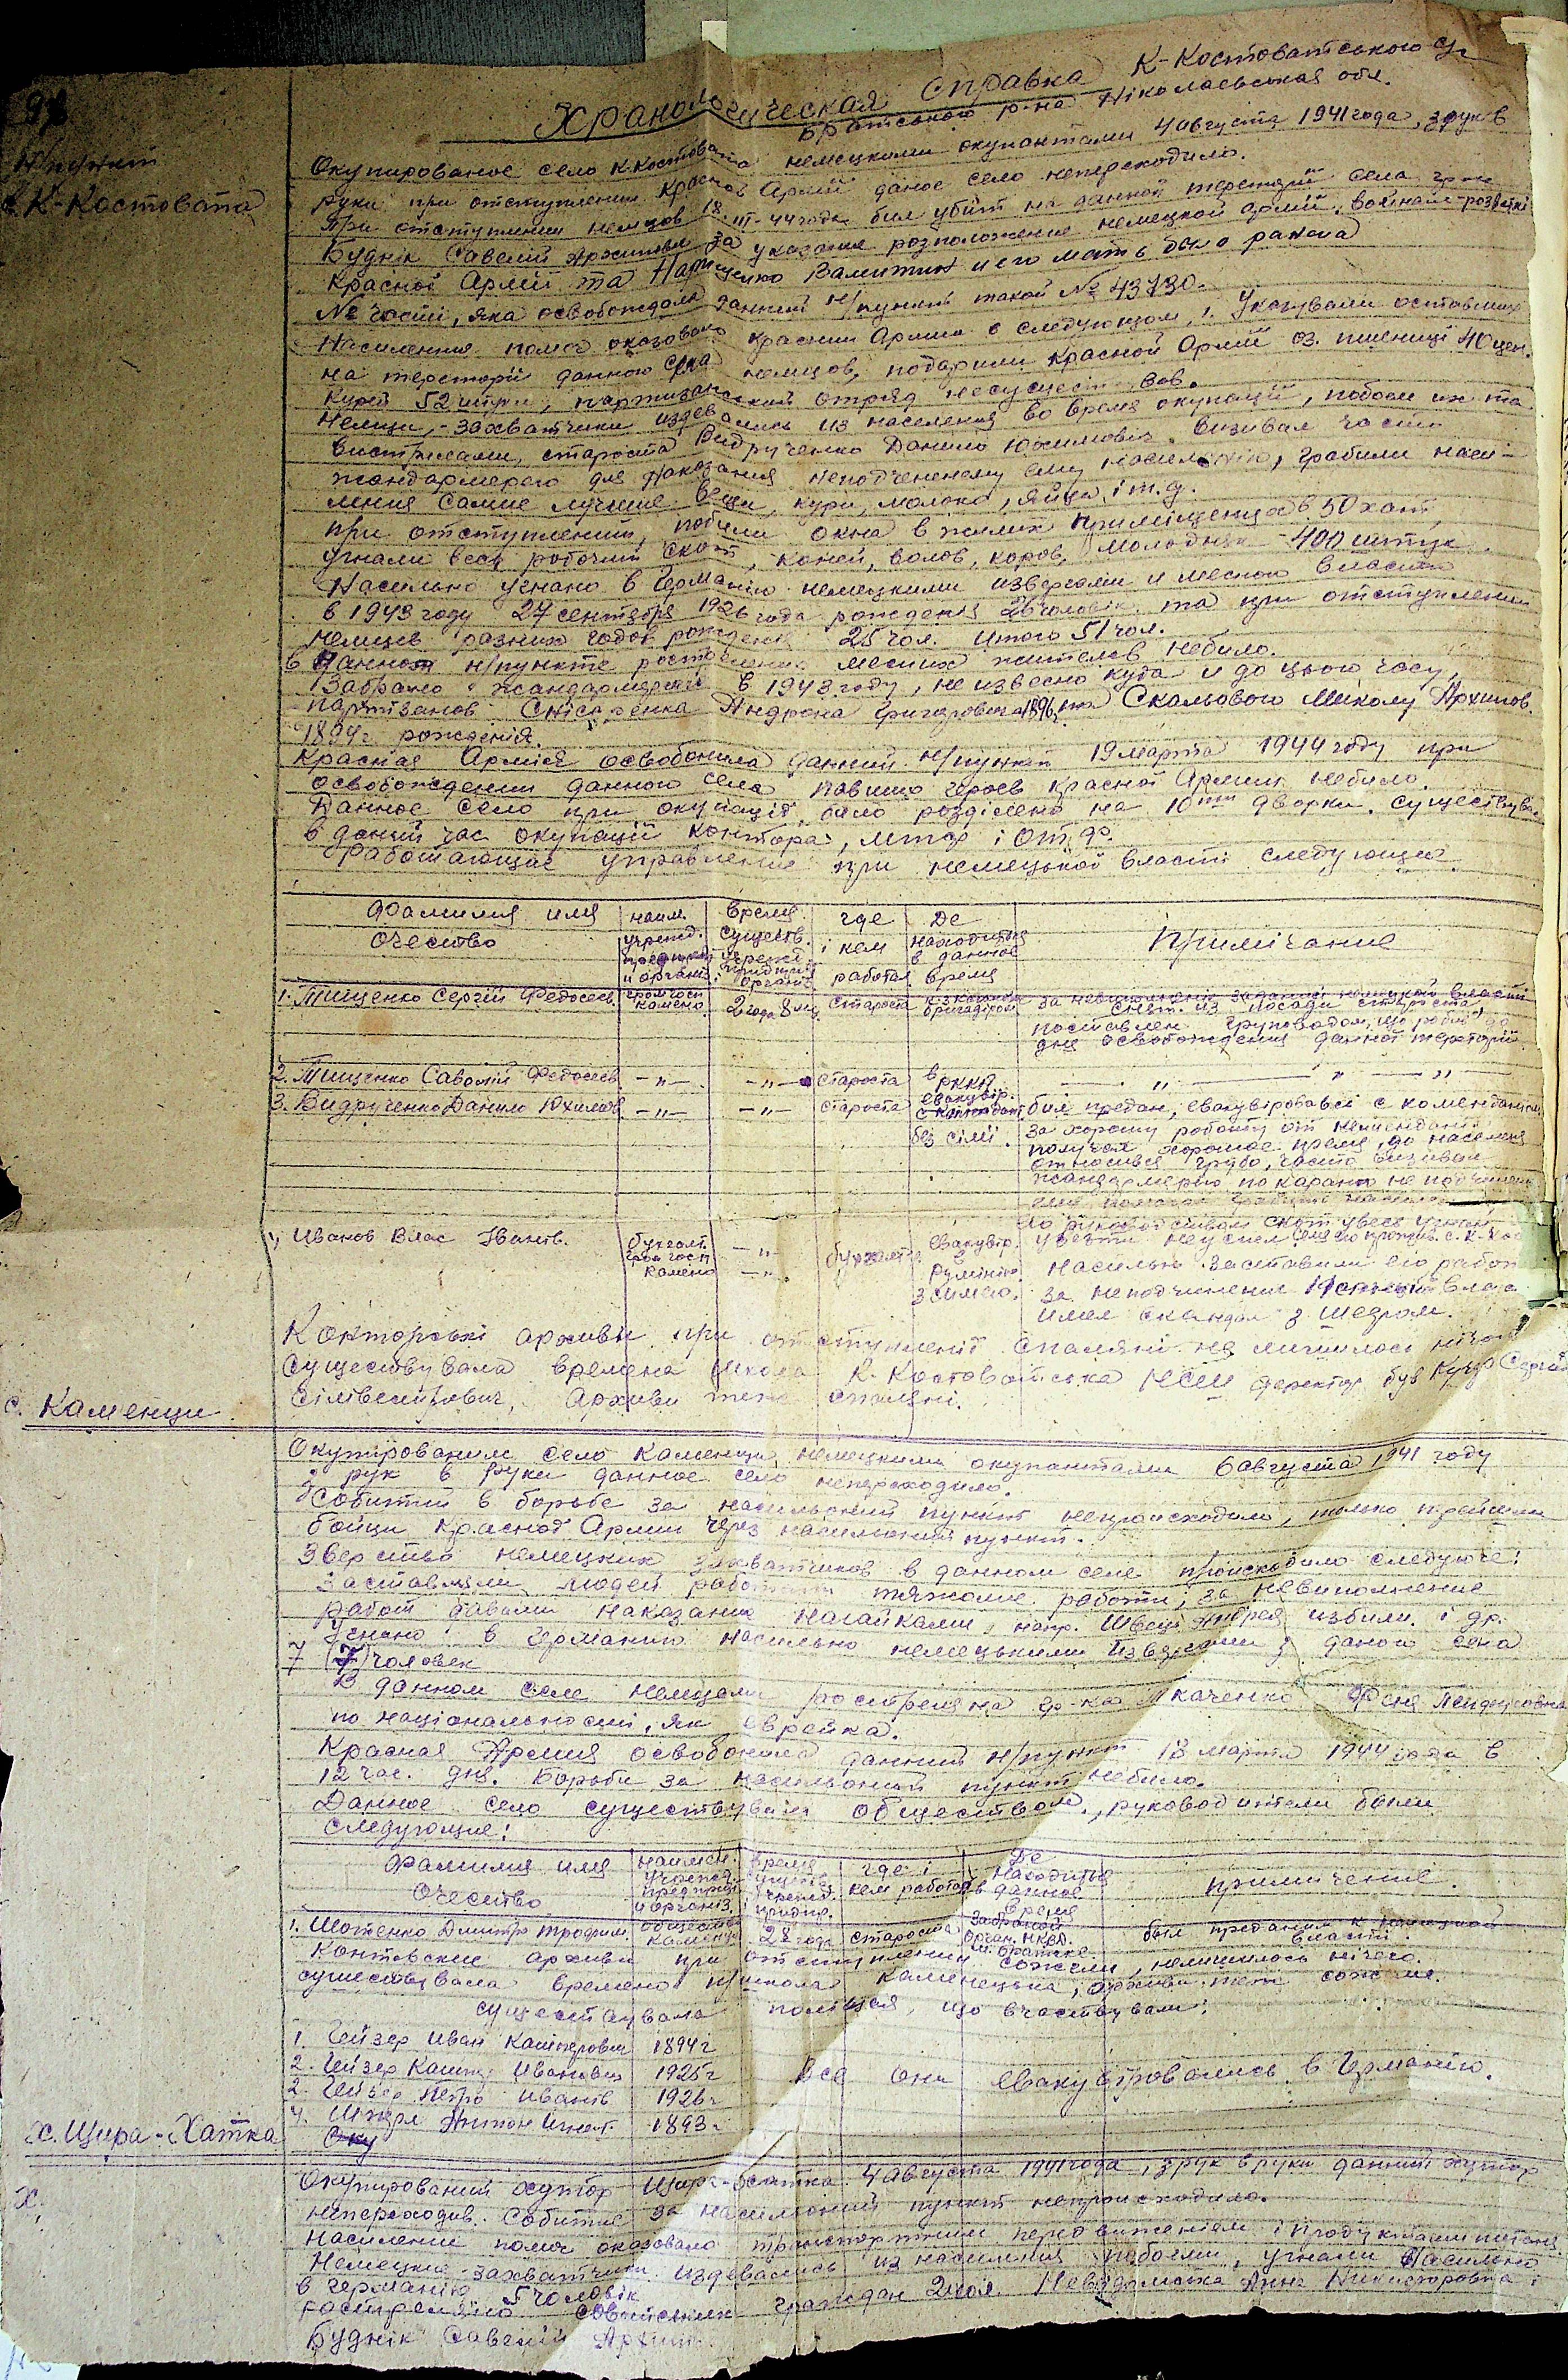 Хранологическая справка К-Костоватського с/
Братського р-на Ніколаевськая обл.
Н/пункт
с. К-Костовата
Окупированое село К.Костовата немецкими окупантами 4 августа 1941 года, з рук в
руки при отступлении Красной Армії даное село непереходило.
При отступлении немцов 18.III-44 года бил убит на данной територїї села гр-н
Буднік Савелій Архипови за указание розположение немецкой армії, войнам-розведкі
Красной Армії та Валитин и его мать било ранена
№ части, яка освобождала данний н/пункт такой № 43730.
Населения помоч оказовано красний Армии в следующом, 1. Указували оставших
на територїї данного села немцов, подарили Красной Армії оз. пшениці 40 цен.
Курей 52 штуки, партизанский отряд несущест вов.
Немци,-захватчики издевались из населения во время окупації, побоем их та
вистрелами, староста Видрученко Данило Юхимович. визивал часто
жандармерею для наказания неподчененому ему населению, грабили насе-
ления самие лучшие вещи, кури, молоко, яйца і т.д.
при отступлении, побили окна в жилих приміщенця в 50 хат,
угнали весь робочий скот, коней, волов, коров, молодняк - 400 штук.
Насильно угнано в Германию немецкими извергами и месною властю
в 1943 году 27 сентября 1926 года рождения 26 человік та при отступлении
немцев разних годов рождения 25 чол. итого 51 чол.
в данном н/пункте рострелених месних жителей небило.
Забрано жандармерией в 1943 году, не извесно куда и до цього часу,
партизанов Снісаренка Андрона Григоровича 1896 та Скальового Миколу Архипов.
1894 г. рождения.
Красная Армія освободила данний н/пункт 19 марта 1944 году при
освобождении данного села павших героев Красной Армии небило.
Данное село при окупації било розділено на 10ть дворки. Существува.
в даний час окупації контора, мтор і от.д.
Работающие управления при немецькой власти следующие
Фамилия имя очество
наим. учрежд. предприят и організ.
время существ. учрежд. придпр. організ.
где і кем работал
Де находится в данное время
Примічание
1. Тищенко Сергій Федосеев. громгосп Камено. 2 года 8 мц староста бригадіром за невиполнение заданий немецкой власти снят. из посади старости поставлен груповодом, що робив до дня освобождения данной територїї.
2. Тищенко Савелій Федосеев — „ — — „ — староста в РККА — „ — „ — „ —
3. Видрученко Данило Юхимов — „ — — „ — староста евакувір. с комендант без сімї. бил предан, евакувіровався с комендантом
за хорошу роботу от коменданта
получал хорошие премя, до населения
относився грубо, часто визивал
жандармерию покарать не подчинен
руководством скот увесь угнан,
Иванов Влас Іванів. бухгалт. гром госп Камено — „ — бухгалт. евакувір. в Румінію з симею. увезти неуспел
насильно заставили его работ
за неподчинение местной влада
имел скандал з шефом.
Конторські архиви при отступленії спаляні не лишилось нічого
существувала времена школа К. Костоватська НСШ деректор був Сергій
Сілвестрович. Архиви теже спаляні.
с. Каменци
Окупированим село Каменци немецкими окупантами 6 августа 1941 году
з рук в руки данное село непереходило.
Событий в борьбе за насильоний пункт непроисходило, только прейшли
бойци Красной Армии через насильоний пункт.
Зверство немецких захватчиков в данном селе происходило следуюче:
Заставляли людей работать тяжолие роботи, за невиполнение
работ давали наказание нагайками, напр. Швец Андрея избили і др.
Угнано в Германию насильно немецькими извергами з даного села
7 (7) человек
В данном селе немцами рострелена гр-ка Ткаченко Феня
по національности, як еврейка.
Красная Армия освободила данний н/пункт 18 марта 1944 года в
12 час. дня. Борьби за насильоний пункт небило.
Данное село существувала обществом, руководители били
следующие:
Фамилия имя очество
наимен. учрежд. предприя и організ.
время существ учрежд. придпр.
где і кем работал
Де находиться в данное время
примичение.
1. Шотенко Дмитр Трофим. общество Каменци 2½ года староста забраний орган. НКВД. м. Братске бил преданим к немецкой власти.
Контовские архиви при отступлении сожгли, нелишилось нічего.
существувала времено н/школа Каменецька, архиви теж сожгие.
существувала поліция, що вчаствували:
1. Гейзер Иван Кашперович 1894 г
2. Гейзер Кашпер Иванович 1925 г
2. Гейзер Петро Иванів 1926 г
4. Антон Игнат. 1893 г
Все они евакуировались в Германію.
х. Щира-Хатка
Окупирований хутор Щира-хатка 4 августа 1941 года, з рук в руки данний хутор
непереходив. Событие за насильоний пункт непроисходило.
Население помоч оказовало транспортним передвижением і продуктами питания
Немецкие захватчики издевались из населения побоями, угнали насильно
в германію 5 человік
рострелено совітських граждан 2 чол. Анна Никифоровна і
Буднік Савелій Архип.